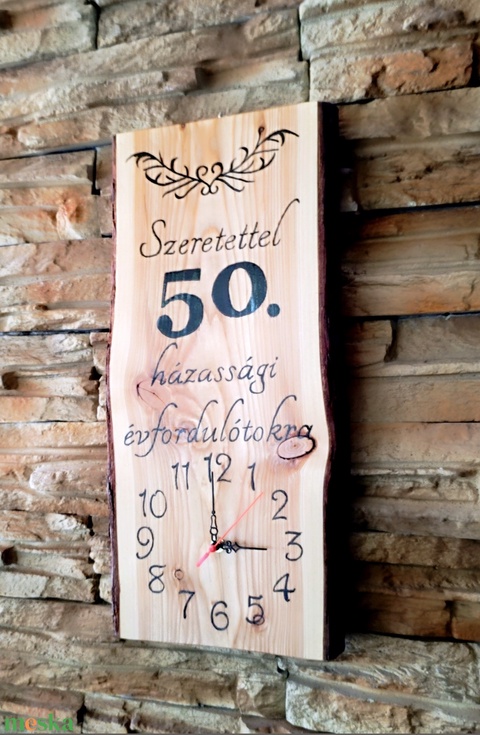 Szeretettel
50.
házassági
évfordulótokra
12
11 1
10 2
9 3
8 4
7 5
6
meska